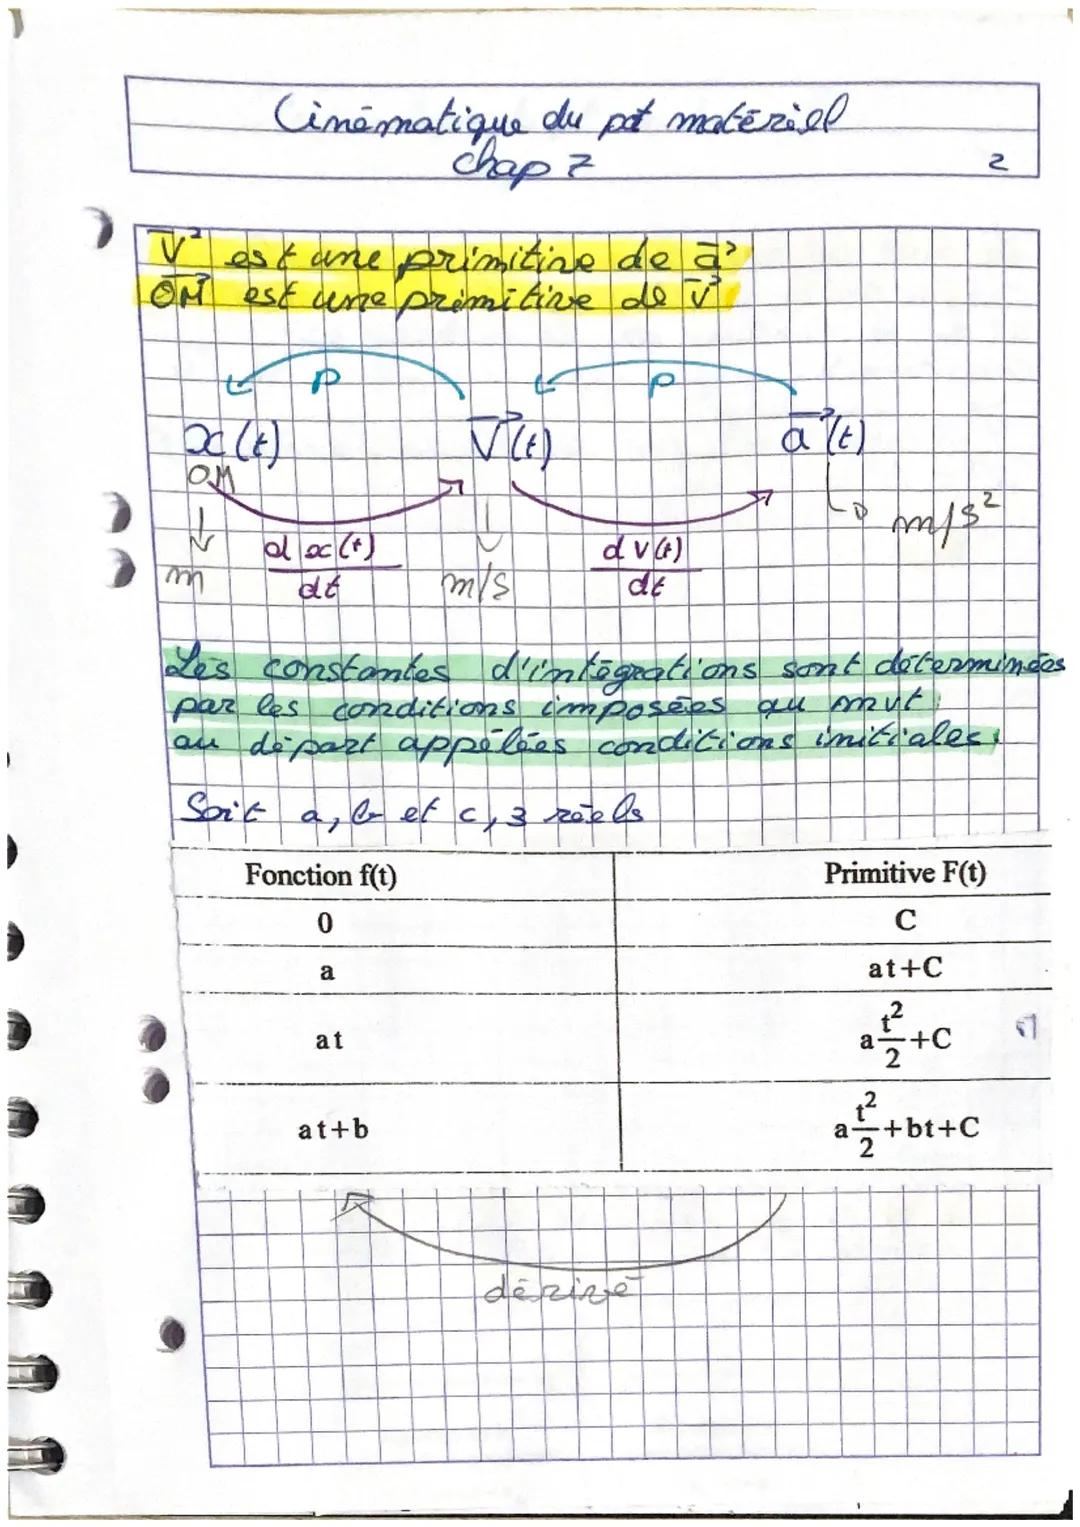 Cinématique du pot matériel
chap 7
2
V⃗ est une primitive de a⃗
OM⃗ est une primitive de v⃗
P
P
x(t)
V⃗(t)
a⃗(t)
OM
m
m/s
m/s²
d x(t)
dt
d v(t)
dt
Les constantes d'intégrations sont déterminées
par les conditions imposées au mvt
au départ appélées conditions initiales.
Soit a, b et c, 3 réels
Fonction f(t) Primitive F(t)
0 C
a at+C
at a t²/2 +C
at+b a t²/2 +bt+C
dérivé